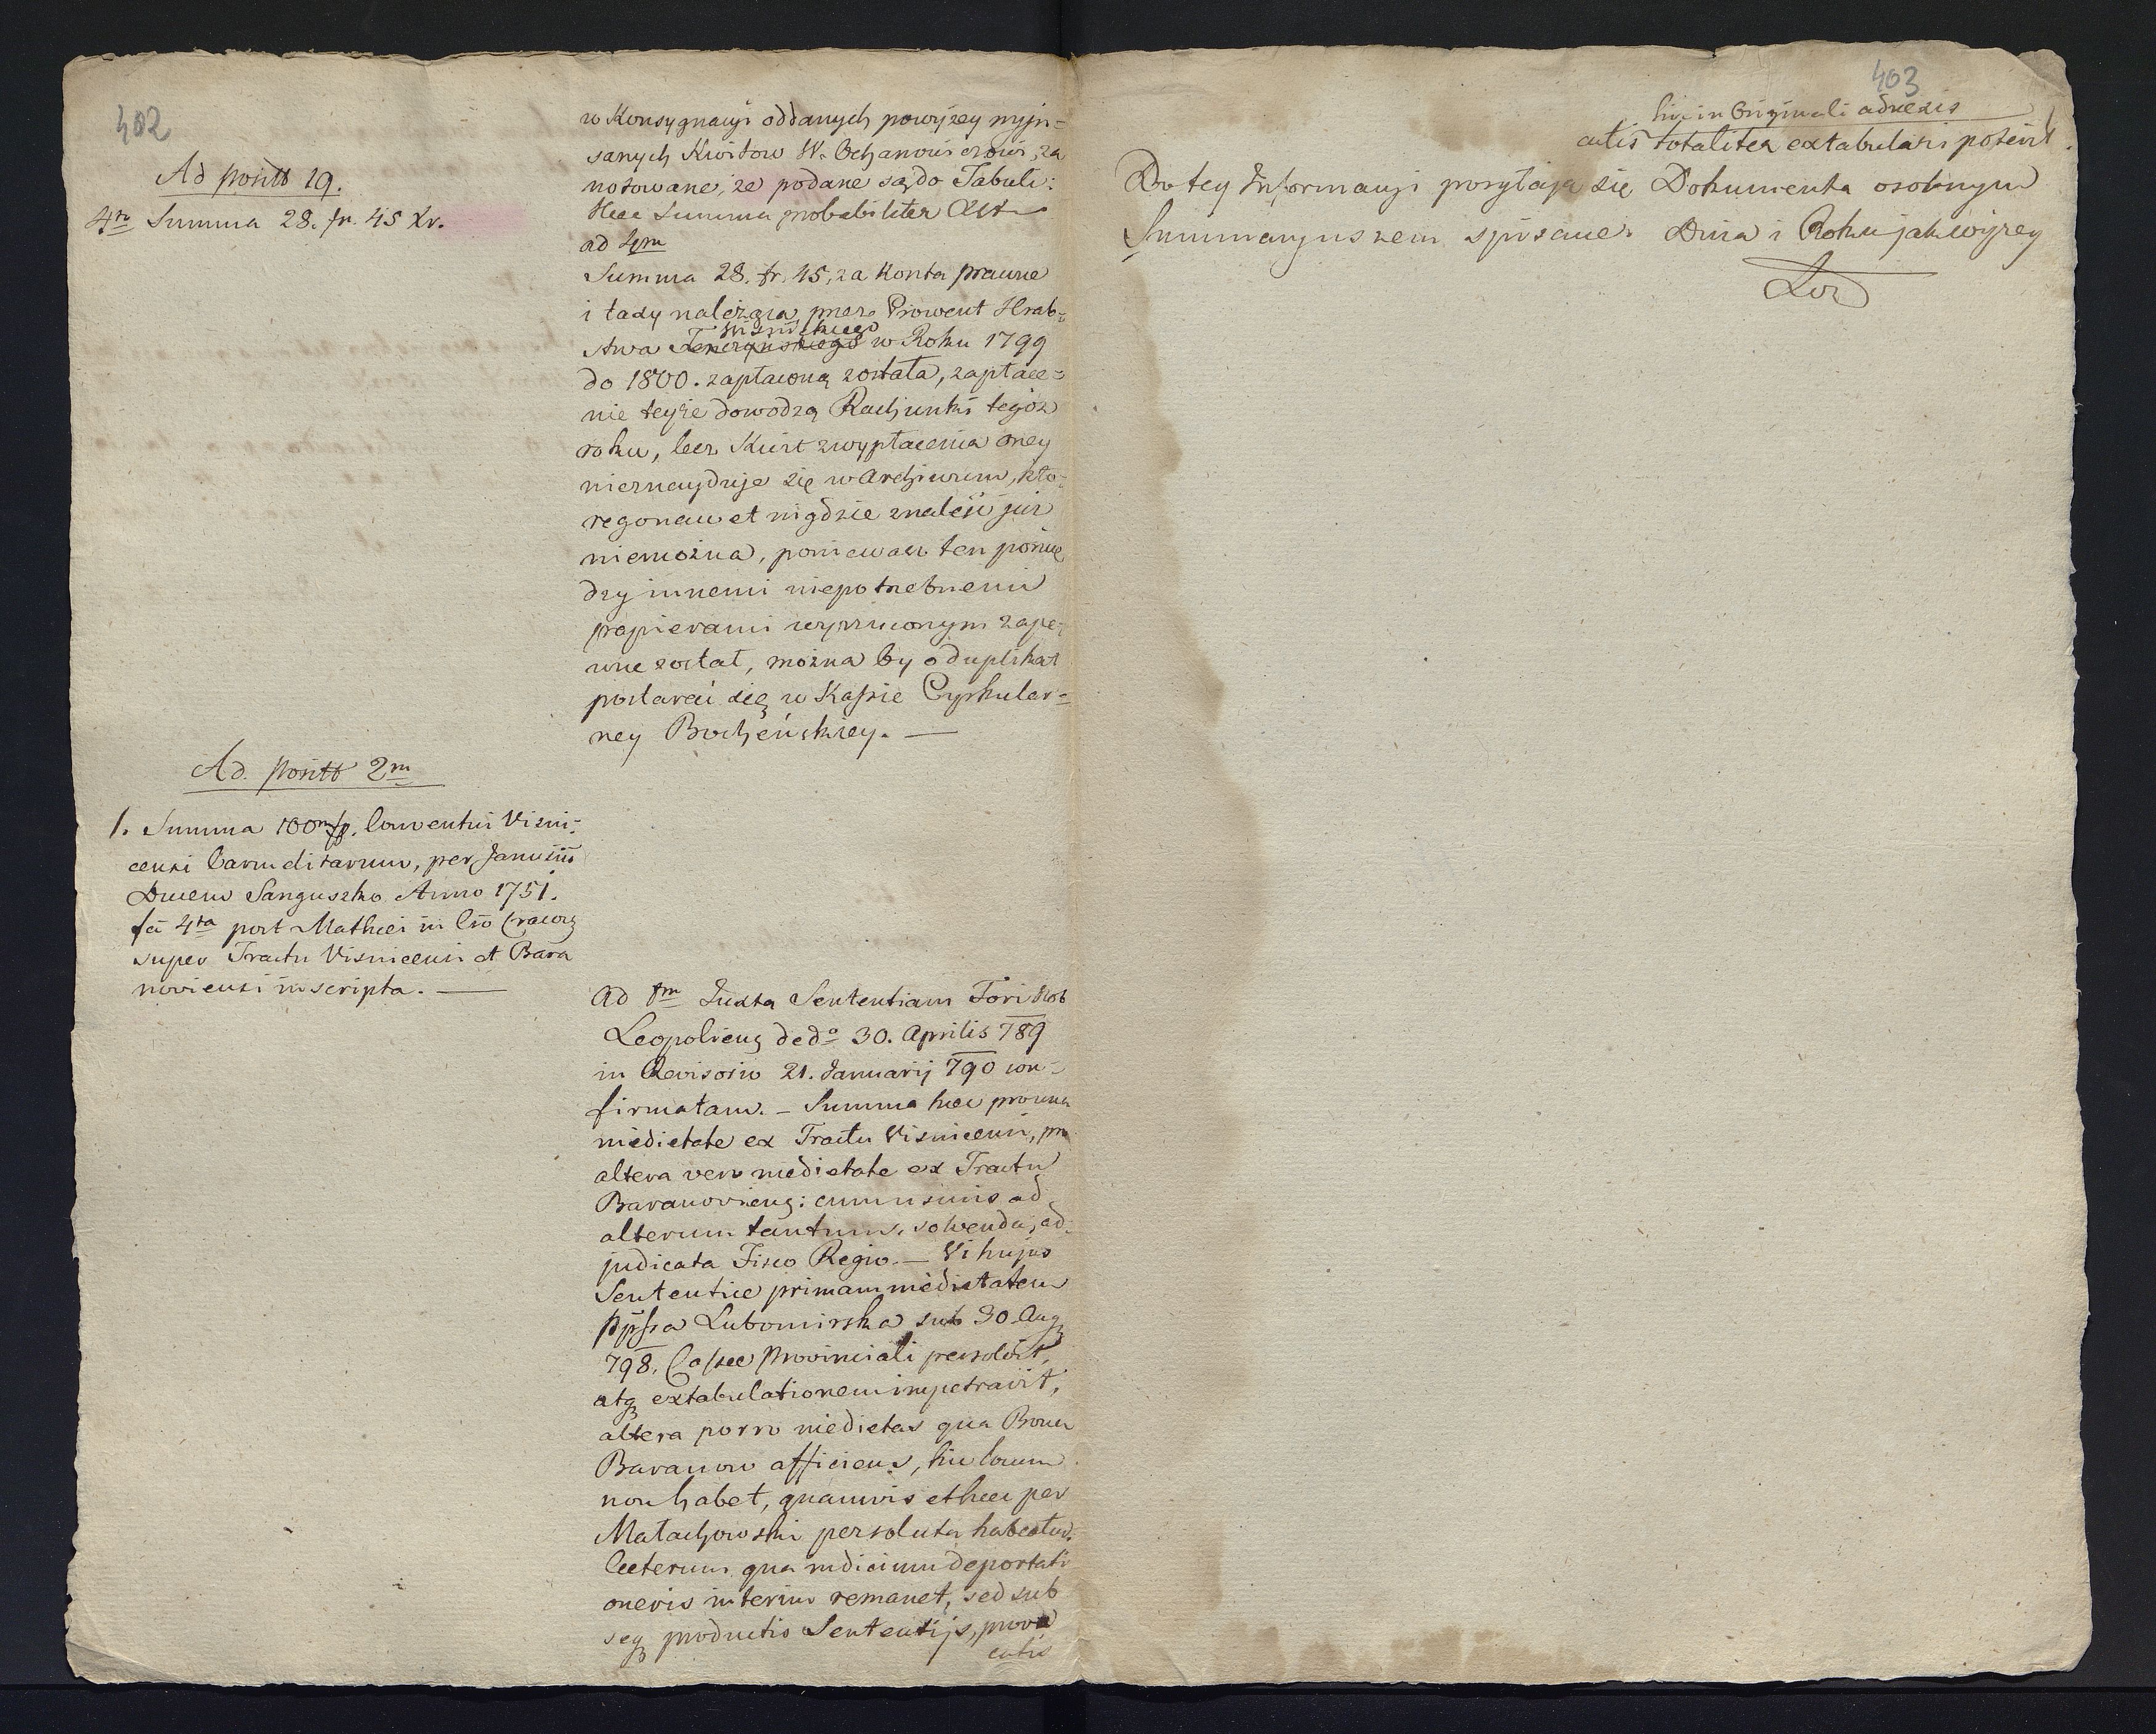 402
Ad positt 19.
4ta Summa 28. fr. 45 Xr.
w Konsygnacyi oddanych powyżey wypi=
sanych Kwitow W. Ochanowiczowi, za
notowane, że podane są do Tabuli:
Haec Summa probabiliter Est
ad 4m
Summa 28. fr. 45, za Konta prawne
i taxy należąca, przez Prowent Hrab=
Wisnickiego
stwa Tenczynskiego w Roku 1799
do 1800. zapłaconą została, zapłace=
nie teyże dowodzą Rachunki tegoż
roku, lecz Kwit z wypłacenia oney
nieznayduje się w Archiwum, kto=
rego nawet nigdzie znaleść już
niemożna, poniewasz ten pomię
dzy innemi niepotrzebnemi
papierami wyrzuconym zape=
wne został, można by o duplikat
postarać się w Kassie Cyrkular=
ney Bocheńskiey. —
Ad. positt 2m
1. Summa 100m fp. Conventui Visni=
censi Carmelitarum, per Janusium
Ducem Sanguszko Anno 1751.
fa 4ta post Mathei in Cso Cracov
super Tractu Visnicensi et Bara
noviensi inscripta. —
Ad 1m Juxta Sententiam Fori Nob
Leopoliens de do 30. Aprilis 789
in Revisorio 21. Januarij 790 con=
firmatam. — Summa haec pro una
medietate ex Tractu Visnicensi, pro
altera vero medietate ex Tractu
Baranoviens: cum usuris ad
alterum tantum, solvenda, ad=
judicata Fisco Regio. — Vi hujus
Sententiae primam medietatem
Ppssa Lubomirska sub 30 Aug
798. Cassae Provinciali persolvit,
atq extabulationem impetravit,
altera porro medietas qua Bona
Baranow afficiens, hic locum
non habet, quamvis et haec per
Małachowski persoluta habeatur.
Caeterum qua indicium deportati
oneris interim remanet, sed sub
seq productis Sententijs, prout
cutis
403
hic in Originali adnexis
cutis totaliter extabulari poterit.
Do tey Informacyi posyłają się Dokumenta osobnym
Summaryuszem spisane. Dnia i Roku jak wyżey